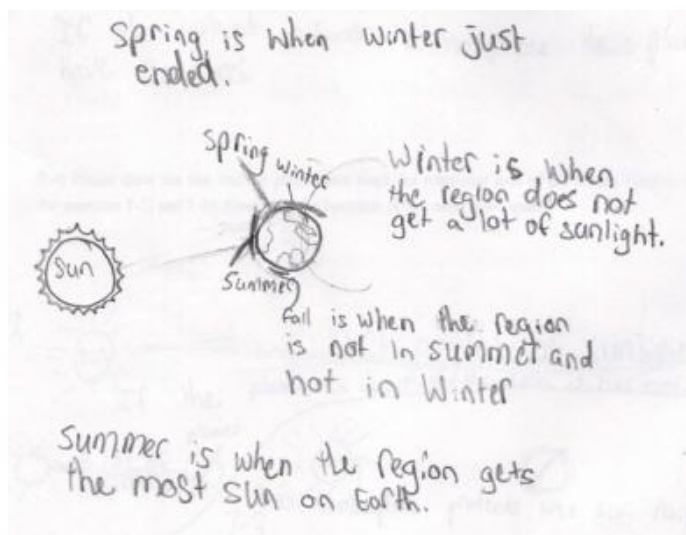 Spring is when winter just
ended.
Spring
Winter
Winter is when
the region does not
get a lot of sunlight.
Sun
Summer
fall is when the region
is not in summer and
not in Winter
Summer is when the region gets
the most sun on Earth.